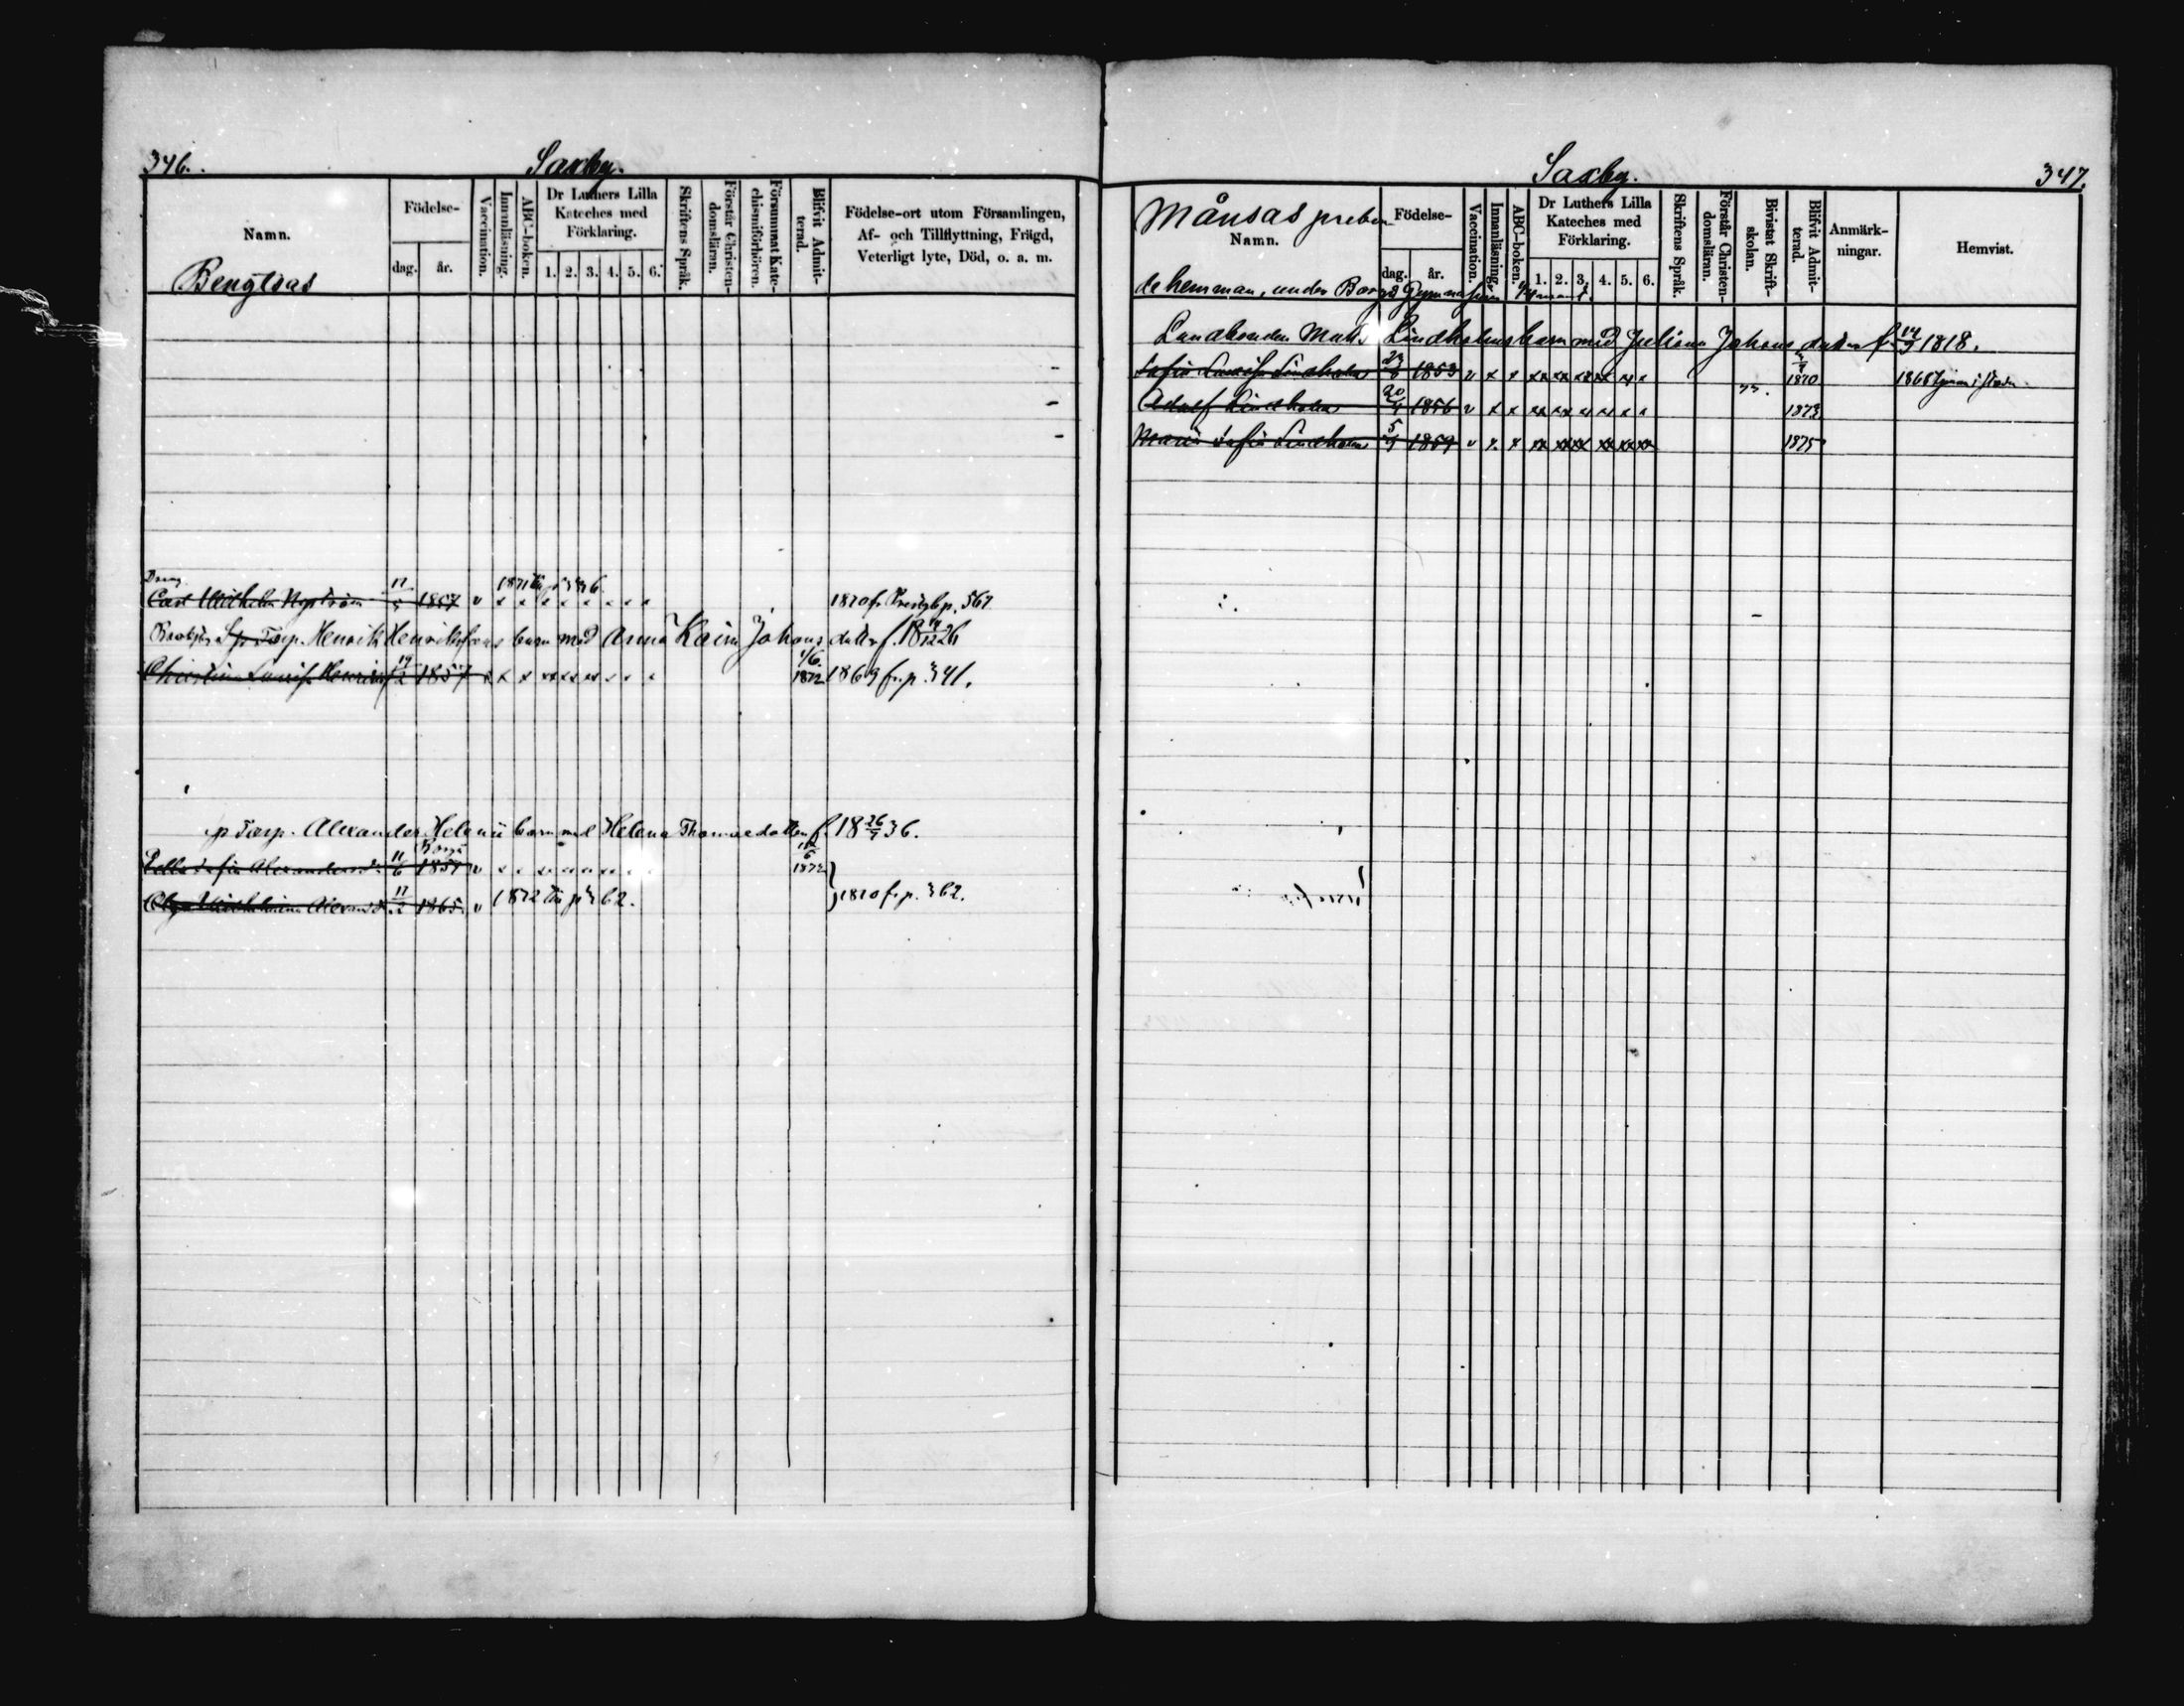 346.
Saxby.
Namn.
Bengtsas
Födelse-
dag. år.
Vaccination.
Innanläsning.
ABC-boken.
Dr Luthers Lilla Kateches med Förklaring.
1. 2. 3. 4. 5. 6.
Skriftens Språk.
Förstår Christen-domsläran.
Försummat Kate-chismiförhören.
Blifvit Admit-terad.
Födelse-ort utom Församlingen,
Af- och Tillflyttning, Frägd,
Veterligt lyte, Död, o. a. m.
Dreng 1871
Carl Wilhelm Nyström 17/5 1857 v x x x x x x x x 1870 fr p. 567
Torp. Henrik Henrikssons barn med Anna Kaisa Johansdotter f. 18 26
Christina Lovisa 1857 x x xx xx xx x x x 1/6 1872 1869 fr. p. 341.
Torp. Alexander Helenii barn med Helena Thomasdotter f. 18 26/7 36.
Borgå
Sofia 11/6 1857 v x x 1872
Olga Wilhelmina 17/2 1865 v 1872 p 362. } 1870 fr. p. 362.
347.
Saxby.
Månsas preben
Namn.
Födelse-
dag. år.
Vaccination.
Innanläsning.
ABC-boken.
Dr Luthers Lilla Kateches med Förklaring.
1. 2. 3. 4. 5. 6.
Skriftens Språk.
Förstår Christen-domsläran.
Bivistat Skrift-skolan.
Blifvit Admit-terad.
Anmärk-ningar.
Hemvist.
de hemman, under Borgå Gymnasium
Landbonden Matts Lindholms barn med Juliana Johansdotter f. 14/9 1818.
Sofia Lovisa Lindholm 1853 v x x xx xx xx xx x x 1870 1868 tjenar i staden
Adolf Lindholm 20/4 1856 v x x 1873
Maria Sofia Lindholm 5/9 1859 v x x xx xxx xx xx xx 1875